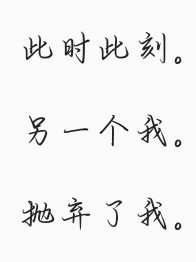 此时此刻。
另一个我。
抛弃了我。